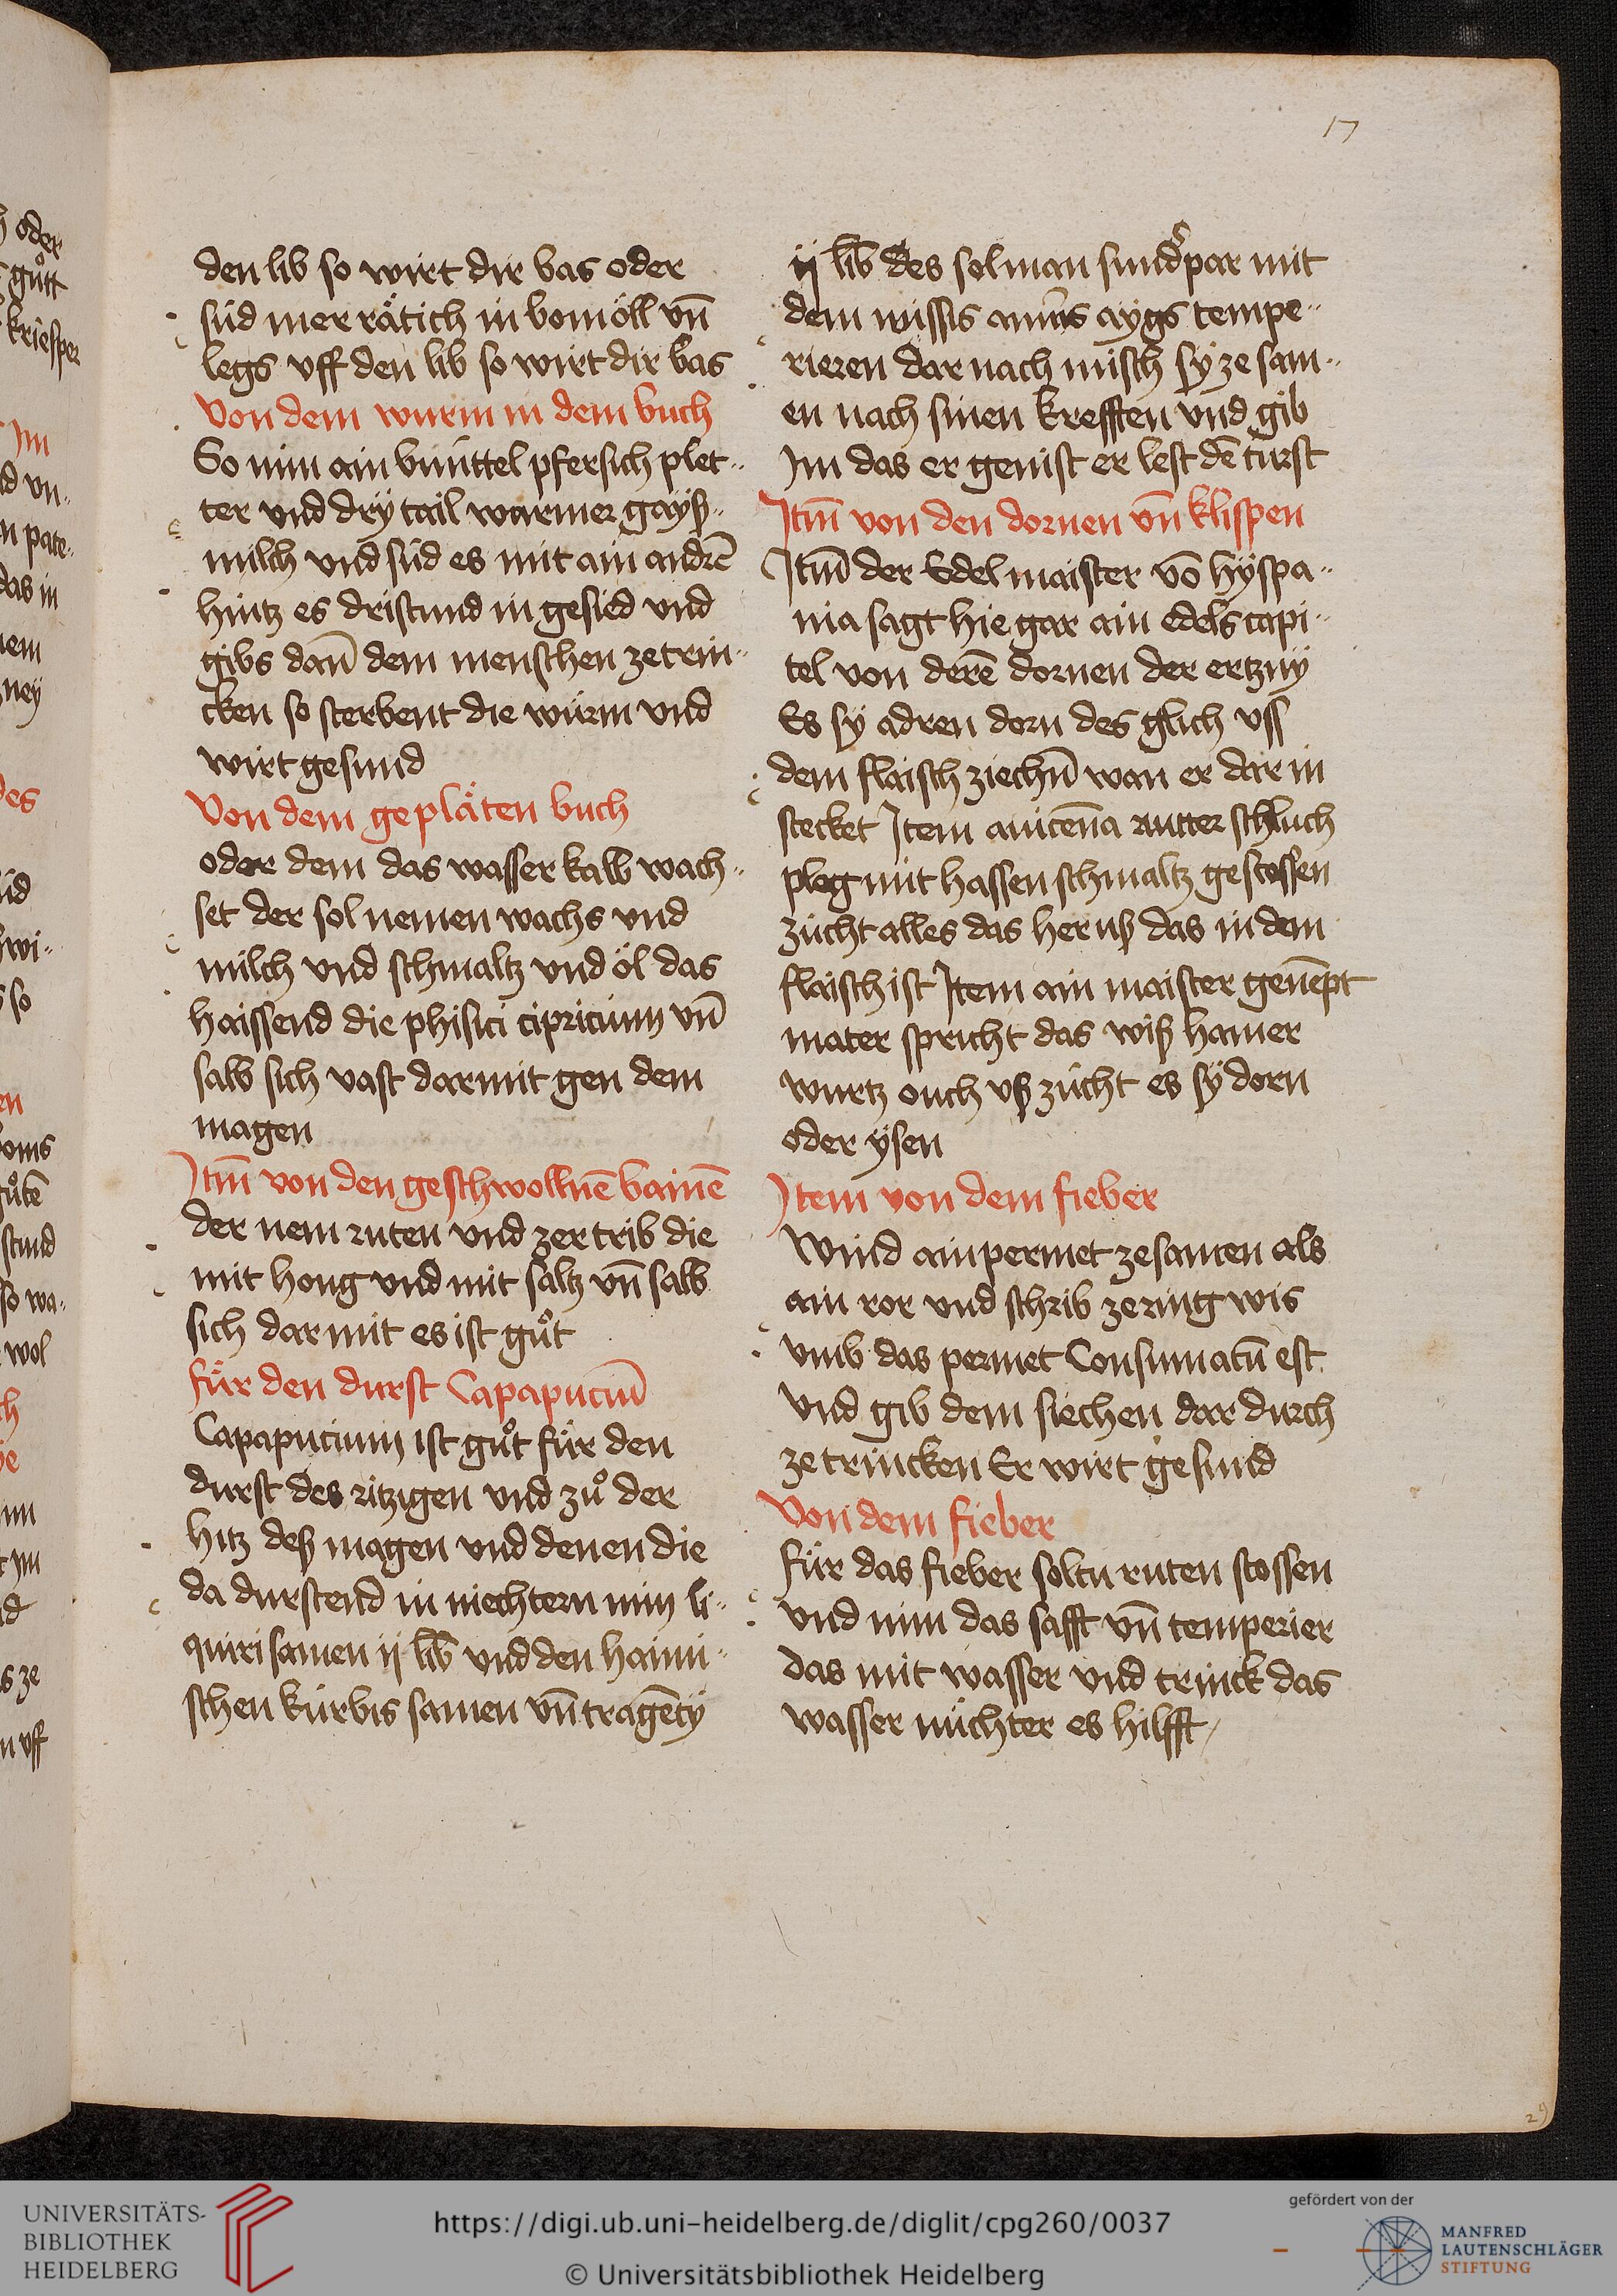 17
den lib so wirt dir bas oder
süd mer rätich in bomöll vn̄
legs vff den lib so wirt dir bas
Von dem wurm in dem buch
So nim ain vnnttel pfersich plet-
ter vnd drÿ tail warmer gayß-
milch vnd süd es mit ain andrē
hintz es dristund in gesied vnd
gibs dan̄ dem menschen ze trin-
cken so sterbent die würm vnd
wirt gesund
Von dem gepläten buch
oder dem das wasser kalb wach-
set der sol nemen wachs vnd
milch vnd schmaltz vnd öl das
haissend die phisici cipricium vn̄
salb sich vast darmit gen dem
magen
Itm̄ von den geschwollnē bainē
der nem ruten vnd zertrib die
mit hong vnd mit saltz vn̄ salb
sich dar mit es ist gůt
für den durst Capapuciū
Capapucium ist gůt für den
durst des ritzigen vnd zů der
hitz deß magen vnd denen die
da durstend in niechtern nim li-
quiri samen ij lib vnd den haimi-
schen kürbis samen vn̄ tragētÿ
ij lib des sol man sundspar mit
dem wissis ains aygs tempe-
rieren dar nach misch sÿ ze sam-
en nach sinen krefften vnd gib
Im das er genist er lest dē turst
Itm̄ von den dornen vn̄ klispen
Itm̄ der Edel maister vō hÿspa-
nia sagt hie gar ain edels capi-
tel von derē dornen der ertznÿ
Es sÿ adren dorn des glich vss
dem flaisch ziechn̄ wan er dar in
stecket Item auicēna nutter schluch
pleg mit hassen schmaltz gestossen
zücht alles das her uß das in dem
flaisch ist Item ain maister genēpt
mater spricht das wiß hamer
wurtz ouch vß zücht es sÿ dorn
oder ÿsen
Item von dem fieber
Wind ain permet ze samen als
ain ror vnd schrib ze ring wis
vmb das permet Consumatū est
Vnd gib dem siechen dar durch
ze trincken Er wirt gesund
Von dem fieber
für das fieber soltu ruten stossen
vnd nim das safft vn̄ temperier
das mit wasser vnd trinck das
wasser nüchter es hilfft
UNIVERSITÄTS-
BIBLIOTHEK
HEIDELBERG
https://digi.ub.uni-heidelberg.de/diglit/cpg260/0037
© Universitätsbibliothek Heidelberg
gefördert von der
MANFRED
LAUTENSCHLÄGER
STIFTUNG